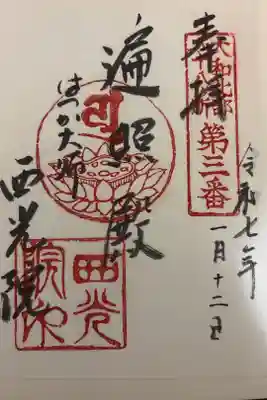 奉拝
大和北部
第三番
令和七年
一月十二日
遍照殿
はつか大師
西光院
西光院印